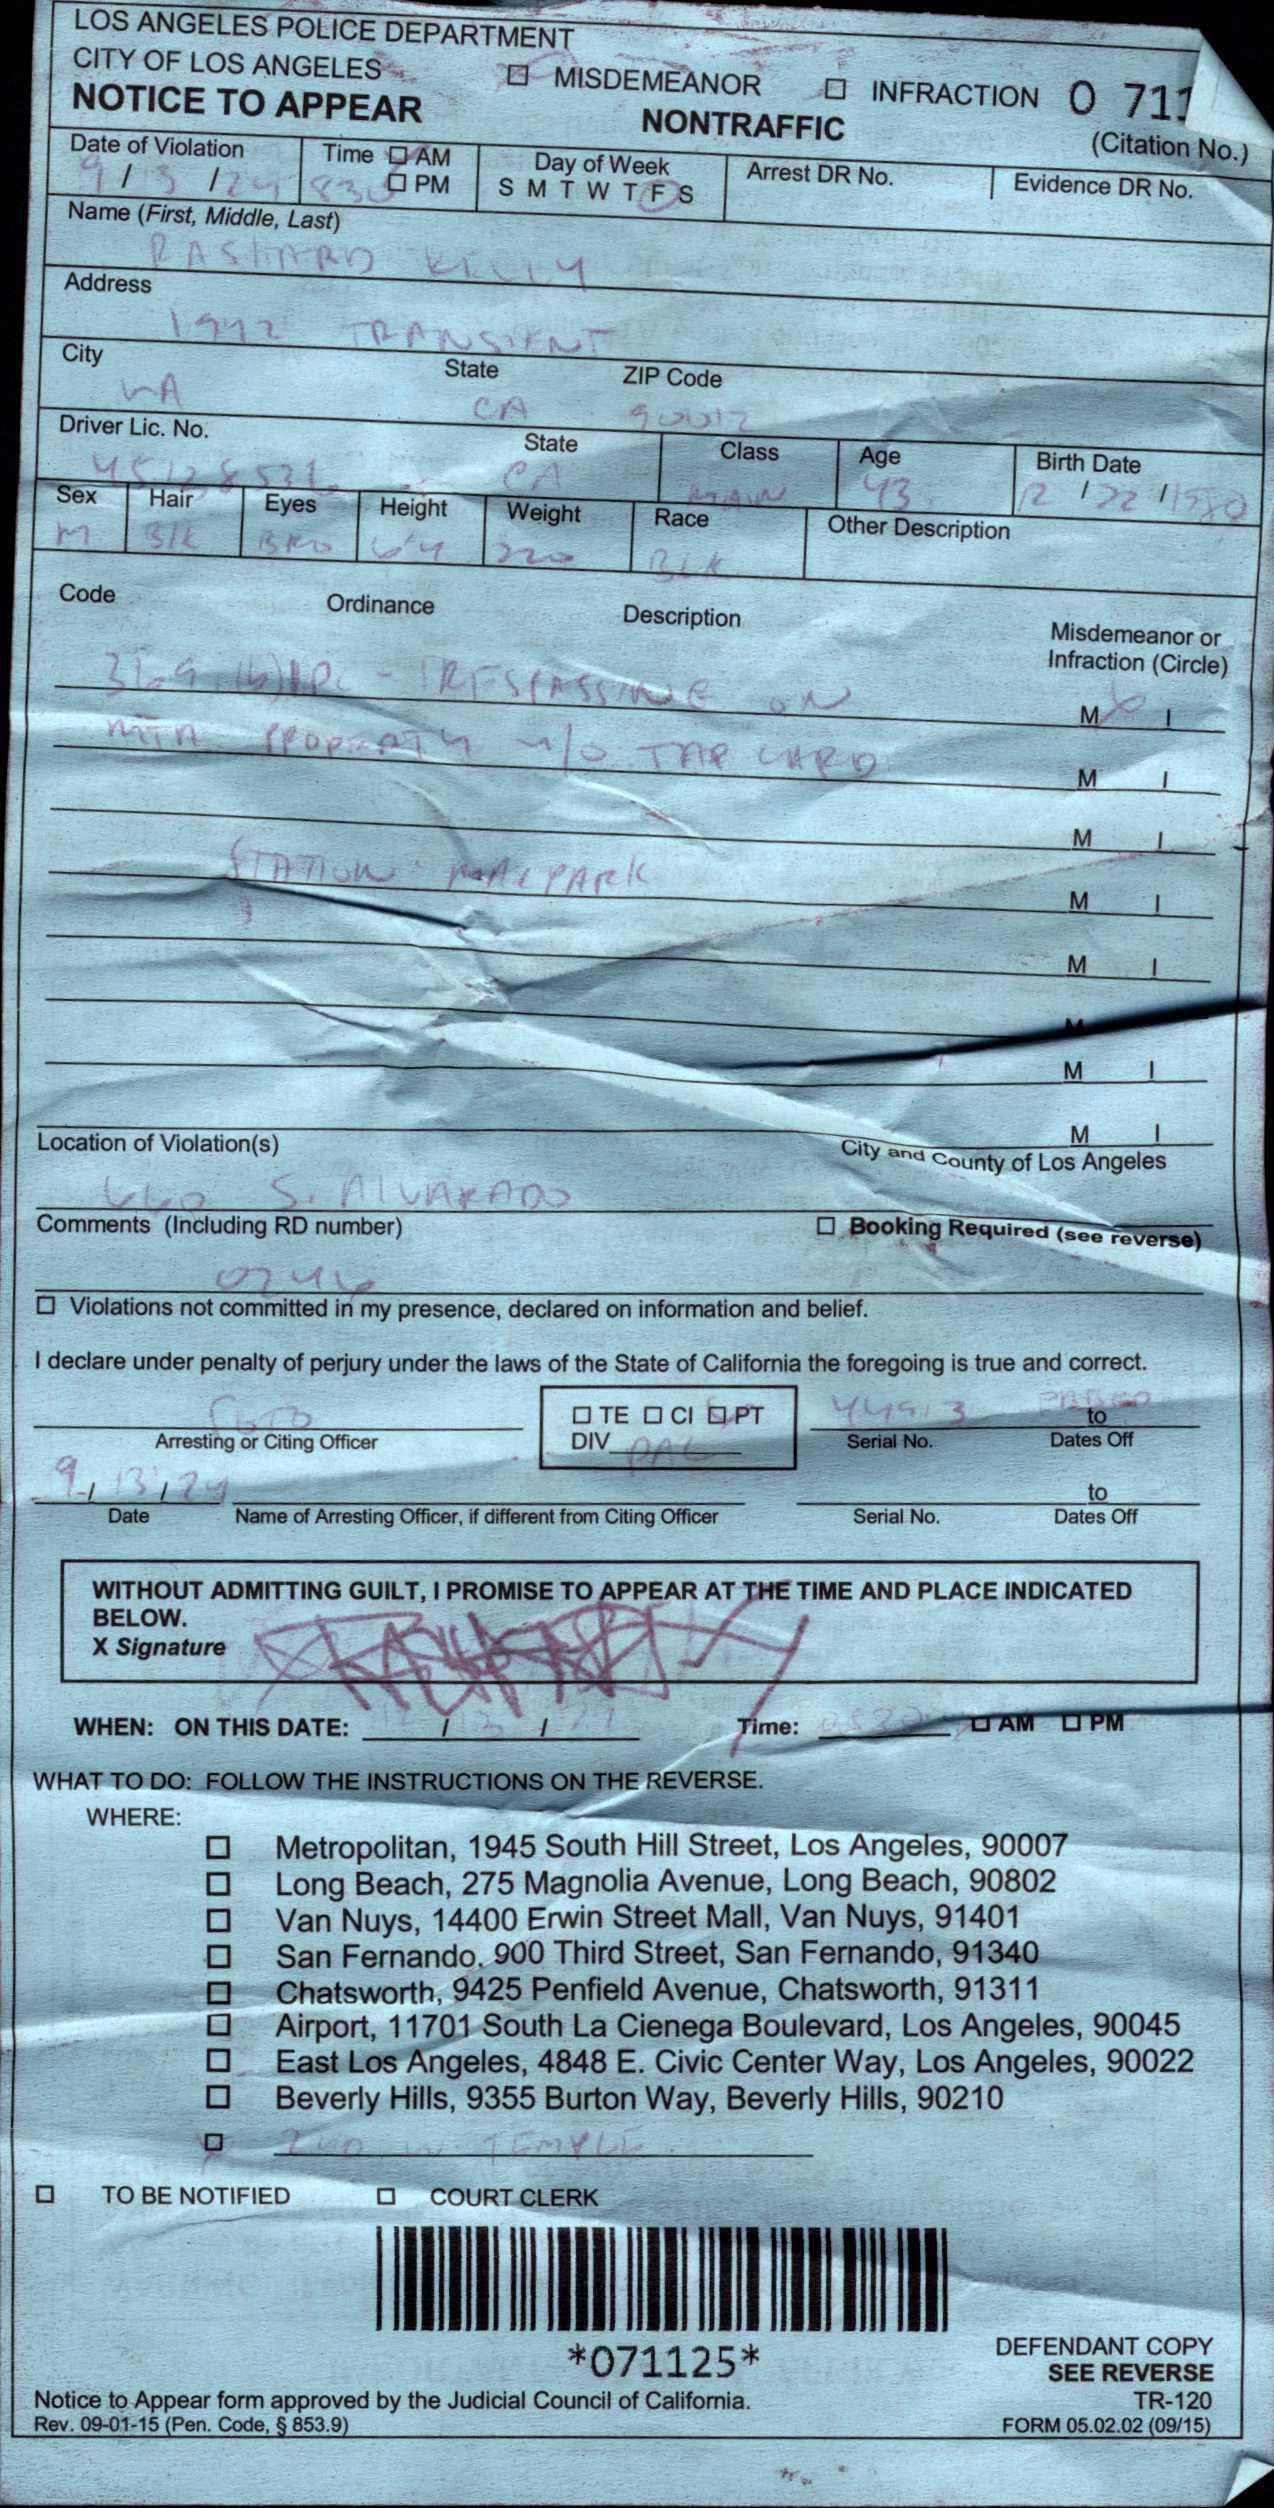 LOS ANGELES POLICE DEPARTMENT
CITY OF LOS ANGELES
☐ MISDEMEANOR ☐ INFRACTION 0 711
NOTICE TO APPEAR NONTRAFFIC (Citation No.)
Date of Violation Time ☐ AM ☐ PM Day of Week Arrest DR No. Evidence DR No.
9 / 13 / 24 830 S M T W T F S
Name (First, Middle, Last)
RASHARD KELLY
Address
1942 TRANSIENT
City State ZIP Code
LA CA 90012
Driver Lic. No. State Class Age Birth Date
CA 43 12 / 22 / 1980
Sex Hair Eyes Height Weight Race Other Description
M Blk BRO 6'4 220 BLK
Code Ordinance Description Misdemeanor or
Infraction (Circle)
PC - TRESPASSING ON M I
MTA PROPERTY w/o TAP CARD M I
M I
STATION MACPARK M I
M I
M
M I
M I
Location of Violation(s) City and County of Los Angeles
660 S. ALVARADO
Comments (Including RD number) ☐ Booking Required (see reverse)
0246
☐ Violations not committed in my presence, declared on information and belief.
I declare under penalty of perjury under the laws of the State of California the foregoing is true and correct.
☐ TE ☐ CI ☐ PT 44913 to
Arresting or Citing Officer DIV Serial No. Dates Off
9 / 13 / 24 to
Date Name of Arresting Officer, if different from Citing Officer Serial No. Dates Off
WITHOUT ADMITTING GUILT, I PROMISE TO APPEAR AT THE TIME AND PLACE INDICATED
BELOW.
X Signature
WHEN: ON THIS DATE: 12 / 13 / Time: ☐ AM ☐ PM
WHAT TO DO: FOLLOW THE INSTRUCTIONS ON THE REVERSE.
WHERE:
☐ Metropolitan, 1945 South Hill Street, Los Angeles, 90007
☐ Long Beach, 275 Magnolia Avenue, Long Beach, 90802
☐ Van Nuys, 14400 Erwin Street Mall, Van Nuys, 91401
☐ San Fernando, 900 Third Street, San Fernando, 91340
☐ Chatsworth, 9425 Penfield Avenue, Chatsworth, 91311
☐ Airport, 11701 South La Cienega Boulevard, Los Angeles, 90045
☐ East Los Angeles, 4848 E. Civic Center Way, Los Angeles, 90022
☐ Beverly Hills, 9355 Burton Way, Beverly Hills, 90210
☐ W. TEMPLE
☐ TO BE NOTIFIED ☐ COURT CLERK
*071125*
DEFENDANT COPY
SEE REVERSE
Notice to Appear form approved by the Judicial Council of California. TR-120
Rev. 09-01-15 (Pen. Code, § 853.9) FORM 05.02.02 (09/15)